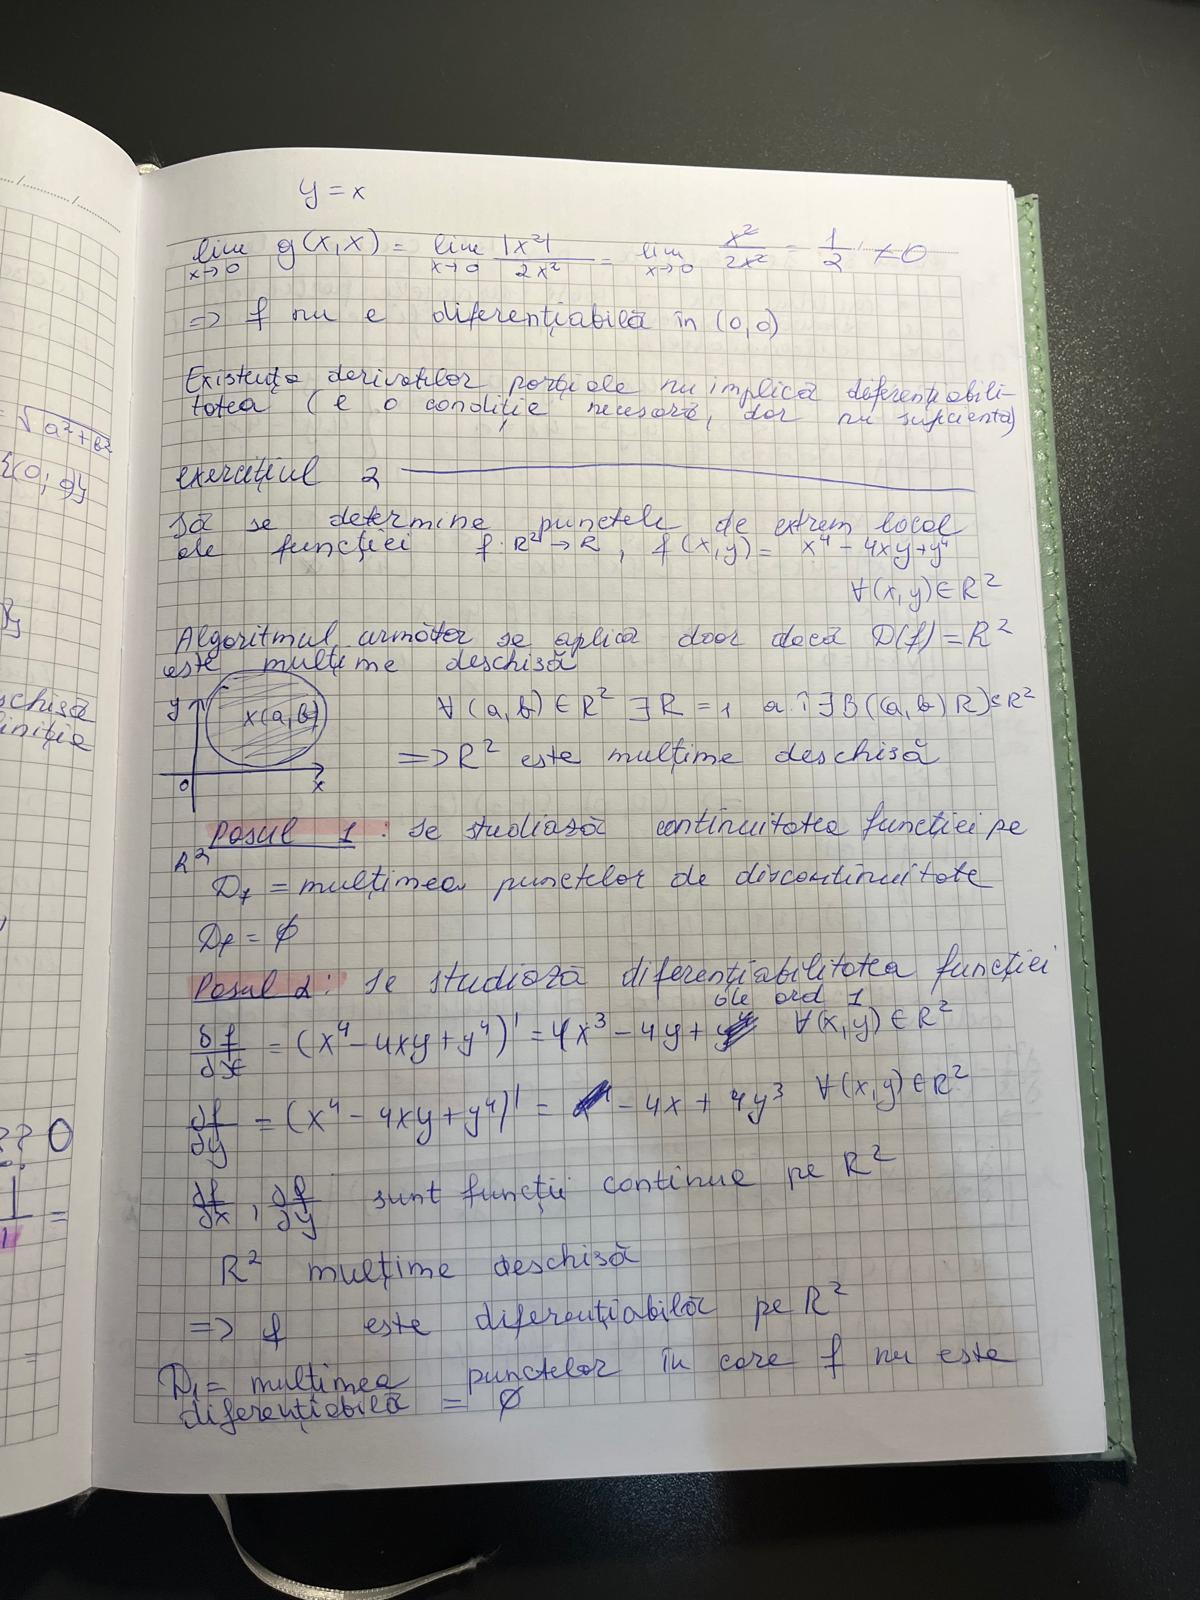 y = x
lim x→0 g(x,x) = lim x→0 |x²|/2x² = lim x→0 x²/2x² = 1/2 ≠ 0
=> f nu e diferențiabilă în (0,0)
Existența derivatelor parțiale nu implică diferențiabili-
tatea (e o condiție necesară, dar nu suficientă)
exercițiul 2
Să se determine punctele de extrem local
ale funcției f: R² → R, f(x,y) = x⁴ - 4xy + y⁴
∀(x,y)∈R²
Algoritmul următor se aplică doar dacă D(f) = R²
este mulțime deschisă
y x(a,b) ∀(a,b)∈R² ∃R=1 a.î ∃B((a,b)R)⊂R²
=> R² este mulțime deschisă
0 x
Pasul 1: se studiază continuitatea funcției pe
R²
Df = mulțimea punctelor de discontinuitate
Df = ∅
Pasul 2: se studiază diferențiabilitatea funcției
de ord 1
∂f/∂x = (x⁴ - 4xy + y⁴)' = 4x³ - 4y + ∀(x,y)∈R²
∂f/∂y = (x⁴ - 4xy + y⁴)' = - 4x + 4y³ ∀(x,y)∈R²
∂f/∂x, ∂f/∂y sunt funcții continue pe R²
R² mulțime deschisă
=> f este diferențiabilă pe R²
D₁ = mulțimea punctelor în care f nu este
diferențiabilă = ∅
= √a²+b²
{(0,0)}
schisă
iniție
?? 0
=
1
=